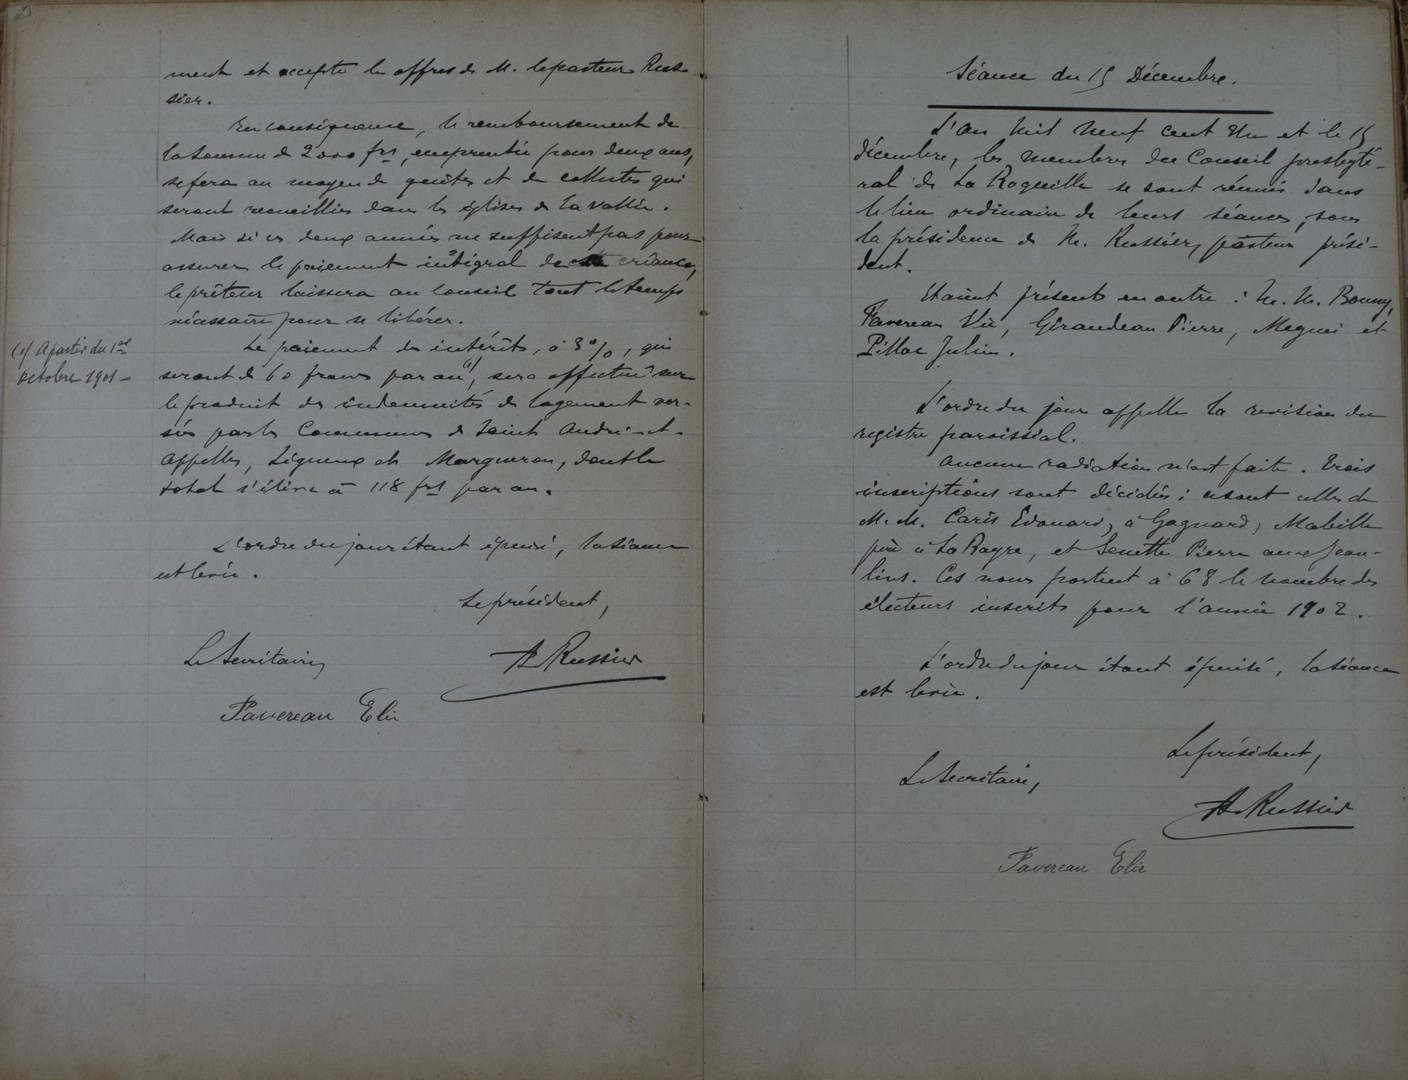 ment et accepte les offres de M. le pasteur Rus-
sier.
En conséquence, le remboursement de
la somme de 2000 frs, empruntée pour deux ans,
se fera au moyen de quêtes et de collectes qui
seront recueillies dans les églises de la vallée.
Mais si ces deux années ne suffisent pas pour
assurer le paiement intégral de créance,
le prêteur laissera au conseil tout le temps
nécessaire pour se libérer.
(1) A partir du 1er
octobre 1901 –
Le paiement des intérêts, à 3%, qui
seront de 60 francs par an (1), sera effectué sur
le produit des indemnités de logement ver-
sés par les Communes de Saint André-et-
Appelles, Ligueux et Margueron, dont le
total s'élève à 118 frs par an.
L'ordre du jour étant épuisé, la séance
est levée.
Le président,
Le Secrétaire,
A. Russier
Favereau Elie
Séance du 15 Décembre.
L'an mil neuf cent Un et le 15
décembre, les membres du Conseil presbyté-
ral de La Roquille se sont réunis dans
le lieu ordinaire de leurs séances, sous
la présidence de M. Russier, pasteur, prési-
dent.
Etaient présents en outre : M. M. Bouny,
Favereau Elie, Giraudeau Pierre, et
Pillac Julien.
L'ordre du jour appelle la revision du
registre paroissial.
Aucune radiation n'est faite. Trois
inscriptions sont décidées ; ce sont celles de
M. M. Caris Edouard, à Gagnard, Mabille
père à La Rayre, et Senette Pierre aux Jean-
lins. Ces noms portent à 68 le nombre des
électeurs inscrits pour l'année 1902.
L'ordre du jour étant épuisé, la séance
est levée.
Le président,
Le Secrétaire,
A. Russier
Favereau Elie